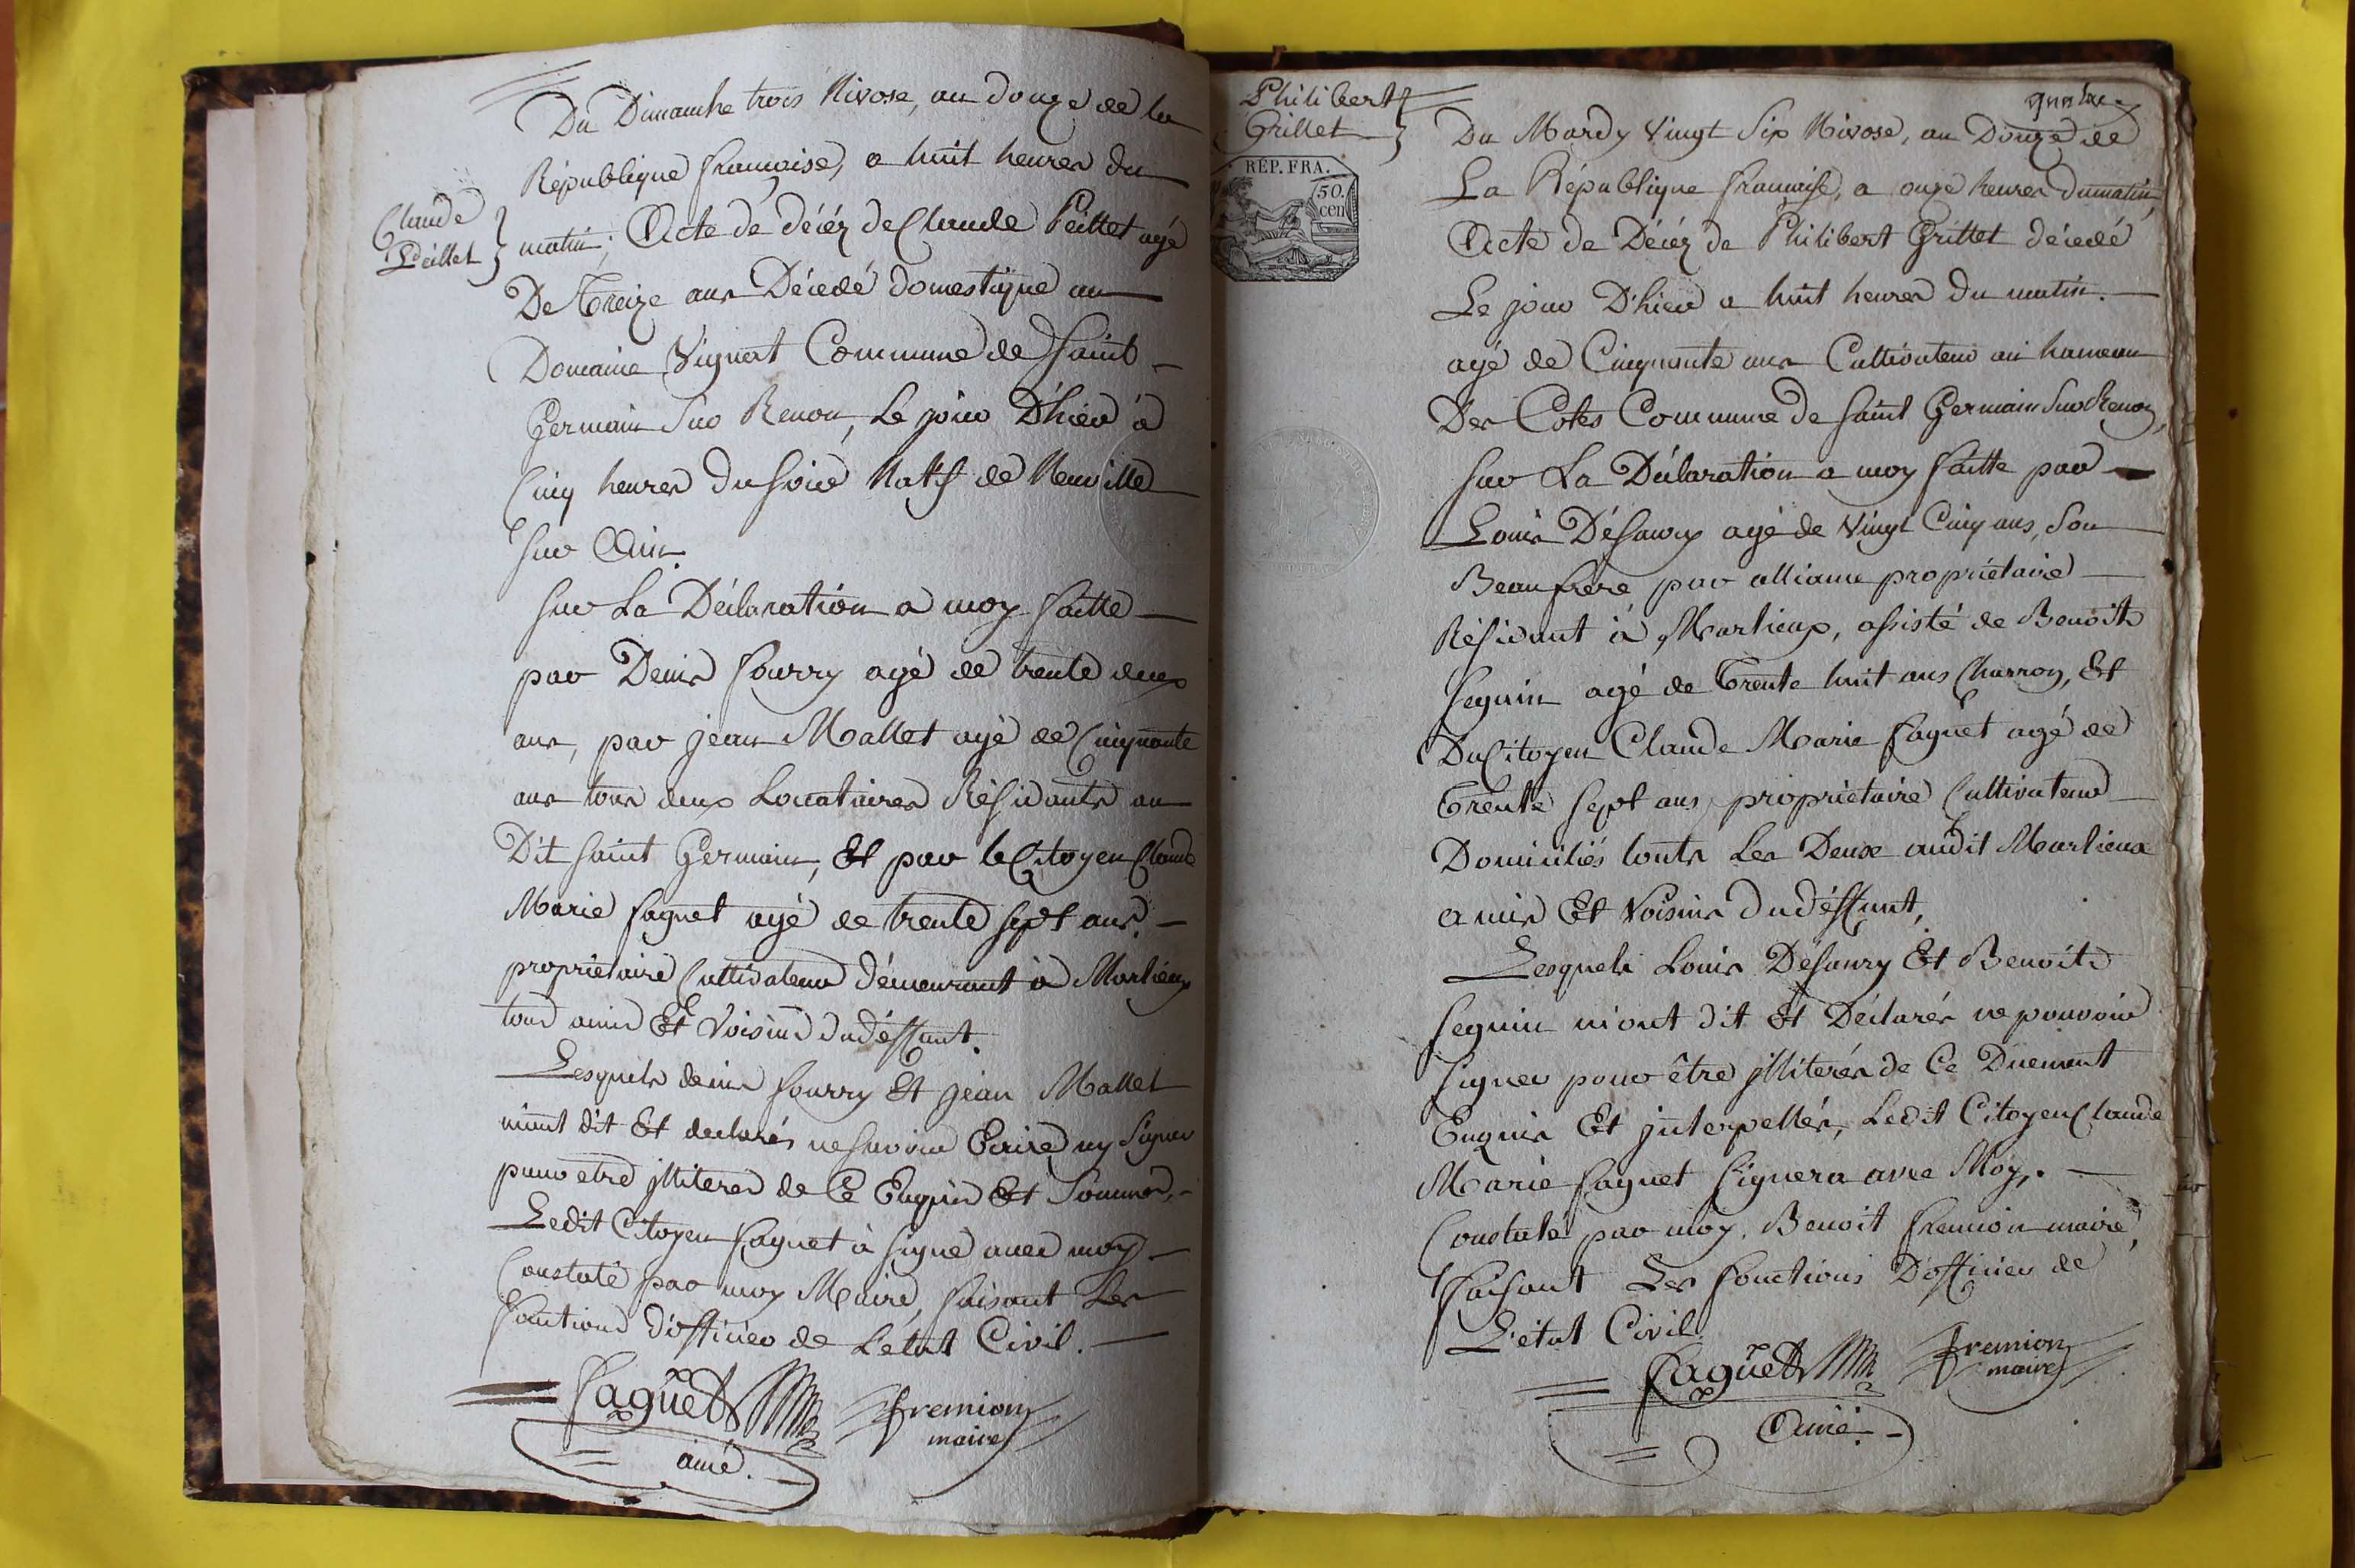 Du Dimanche trois Nivose, an douze de la
République française, a huit heures du
Claude
Peillet
matin; Acte de décéz de Claude Peillet agé
De Treize ans Décedé domestique au
Domaine Vignat Commune de Saint
Germain Sur Renon, Le jour D'hier à
Cinq heures du soir Natif de Neuville
sur Ain.
sur La Déclaration a moy faitte
par Denis fourry agé de trente deux
ans, par jean Mallet agé de Cinquante
ans tous deux Locataires Résidants au
Dit saint Germain, Et par le Citoyen Claude
Marie faguet agé de trente sept ans.
propriétaire Cultivateur démeurant à Marlieux
tous amis Et Voisins du déffunt.
Lesquels denis fourry Et jean Mallet
m'ont dit Et declarés ne savoir Ecrire ny Signer
pour etre illiteres de Ce Enquis Et Sommés,
Ledit Citoyen faguet à signé avec moy
Constaté par moy Maire, faisant Les
fonctions d'officier de L'état Civil.
faguet
ainé.
fremion
maire
Philibert
Grillet
REP. FRA.
50.
cen
Du Mardy Vingt Six Nivose, an Douze de
La République francaise, a onze heures du matin,
Acte de Décéz de Philibert Grillet décedé
Le jour D'hier a huit heures du matin.
agé de Cinquante ans Cultivateur au hameau
Des Cotes Commune de saint Germain Sur Renon,
sur La Déclaration a moy faitte par
Louis Désaury agé de Vingt Cinq ans, Son
Beaufrere par alliance propriétaire
Résidant à Marlieux, assisté de Benoit
seguin agé de Trente huit ans Charron, Et
Du Citoyen Claude Marie faguet agé de
Trente sept ans, propriétaire Cultivateur
Domiciliés touts Les Deux audit Marlieux
amis Et Voisins du déffunt,
Lesquels Louis Désaury Et Benoit
seguin m'ont dit Et Déclarés ne pouvoir
signer pour être illiterés de Ce Duement
Enquis Et interpellés, Ledit Citoyen Claude
Marie faguet signera avec Moy.
Constaté par moy Benoit fremion maire,
faisant Les fonctions D'officier de
L'état Civil.
faguet
Ainé.
fremion
maire